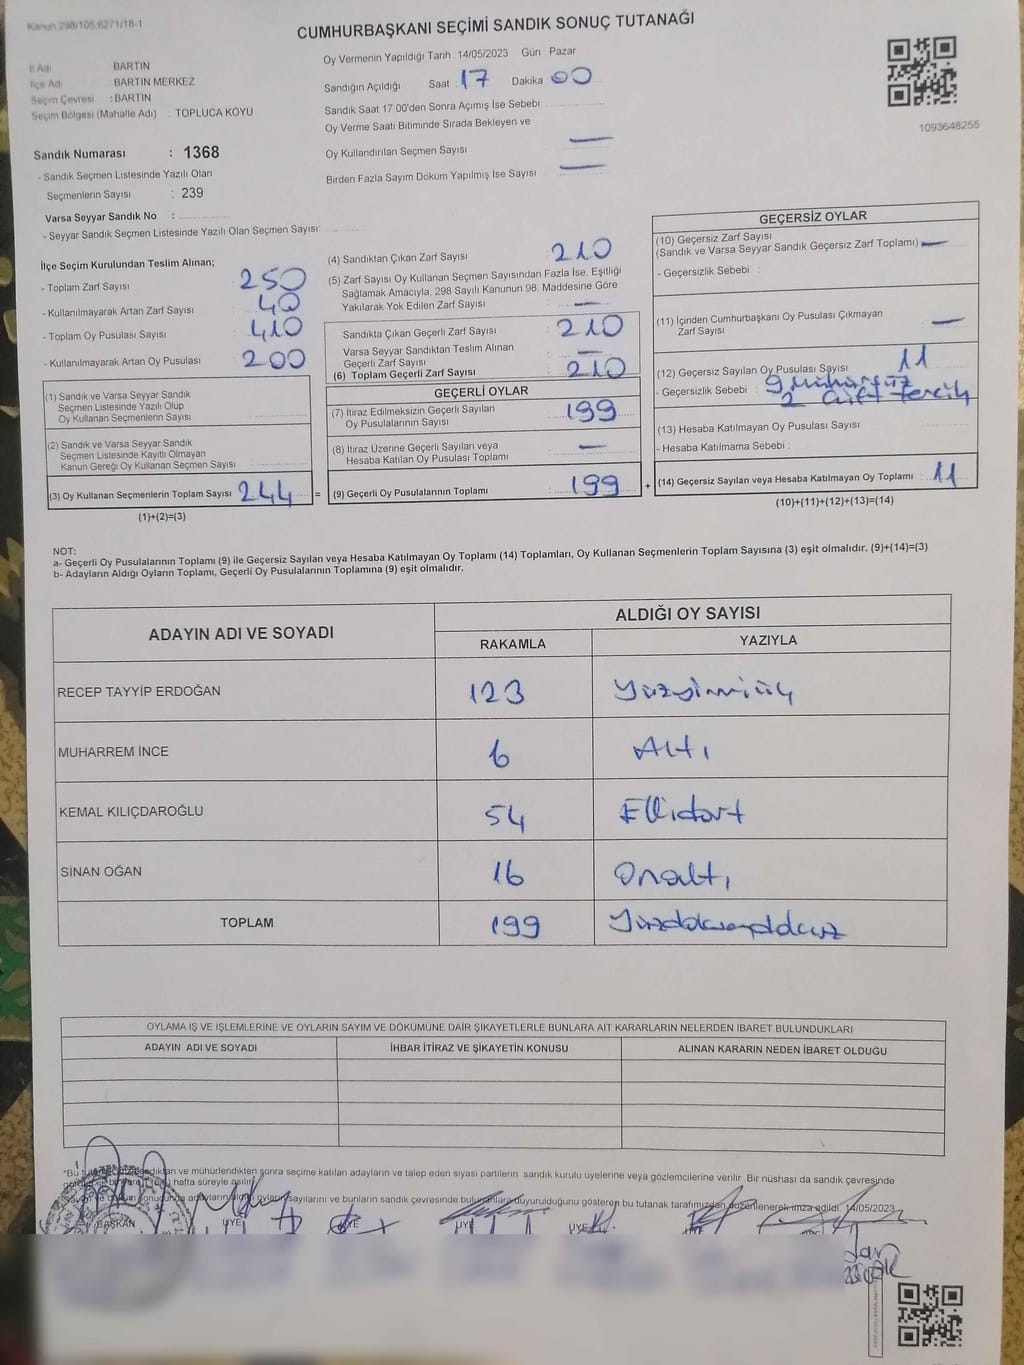 Kanun 298/105 6271/18-1
CUMHURBAŞKANI SEÇİMİ SANDIK SONUÇ TUTANAĞI
İl Adı BARTIN
İlçe Adı BARTIN MERKEZ
Seçim Çevresi : BARTIN
Seçim Bölgesi (Mahalle Adı) : TOPLUCA KÖYÜ
Oy Vermenin Yapıldığı Tarih :14/05/2023 Gün Pazar
Sandığın Açıldığı Saat : 17 Dakika 00
Sandık Saat 17 00'den Sonra Açımış İse Sebebi
Oy Verme Saati Bitiminde Sırada Bekleyen ve
Oy Kullandırılan Seçmen Sayısı —
Birden Fazla Sayım Döküm Yapılmış İse Sayısı —
1093648255
Sandık Numarası : 1368
- Sandık Seçmen Listesinde Yazılı Olan
Seçmenlerin Sayısı : 239
Varsa Seyyar Sandık No :
- Seyyar Sandık Seçmen Listesinde Yazılı Olan Seçmen Sayısı:
İlçe Seçim Kurulundan Teslim Alınan;
- Toplam Zarf Sayısı : 250
- Kullanılmayarak Artan Zarf Sayısı : 40
- Toplam Oy Pusulası Sayısı : 410
- Kullanılmayarak Artan Oy Pusulası : 200
(1) Sandık ve Varsa Seyyar Sandık
Seçmen Listesinde Yazılı Olup
Oy Kullanan Seçmenlerin Sayısı
(2) Sandık ve Varsa Seyyar Sandık
Seçmen Listesinde Kayıtlı Olmayan
Kanun Gereği Oy Kullanan Seçmen Sayısı
(3) Oy Kullanan Seçmenlerin Toplam Sayısı 244 =
(1)+(2)=(3)
(4) Sandıktan Çıkan Zarf Sayısı 210
(5) Zarf Sayısı Oy Kullanan Seçmen Sayısından Fazla İse, Eşitliği
Sağlamak Amacıyla; 298 Sayılı Kanunun 98. Maddesine Göre
Yakılarak Yok Edilen Zarf Sayısı —
Sandıkta Çıkan Geçerli Zarf Sayısı : 210
Varsa Seyyar Sandıktan Teslim Alınan
Geçerli Zarf Sayısı —
(6) Toplam Geçerli Zarf Sayısı : 210
GEÇERLİ OYLAR
(7) İtiraz Edilmeksizin Geçerli Sayılan
Oy Pusulalarının Sayısı : 199
(8) İtiraz Üzerine Geçerli Sayılan veya
Hesaba Katılan Oy Pusulası Toplamı : —
(9) Geçerli Oy Pusulalarının Toplamı : 199 +
GEÇERSİZ OYLAR
(10) Geçersiz Zarf Sayısı
(Sandık ve Varsa Seyyar Sandık Geçersiz Zarf Toplamı) —
- Geçersizlik Sebebi :
(11) İçinden Cumhurbaşkanı Oy Pusulası Çıkmayan
Zarf Sayısı —
(12) Geçersiz Sayılan Oy Pusulası Sayısı 11
- Geçersizlik Sebebi : 9 Mühürsüz
2 Çift Tercih
(13) Hesaba Katılmayan Oy Pusulası Sayısı
- Hesaba Katılmama Sebebi :
(14) Geçersiz Sayılan veya Hesaba Katılmayan Oy Toplamı : 11
(10)+(11)+(12)+(13)=(14)
NOT:
a- Geçerli Oy Pusulalarının Toplamı (9) ile Geçersiz Sayılan veya Hesaba Katılmayan Oy Toplamı (14) Toplamları, Oy Kullanan Seçmenlerin Toplam Sayısına (3) eşit olmalıdır. (9)+(14)=(3)
b- Adayların Aldığı Oyların Toplamı, Geçerli Oy Pusulalarının Toplamına (9) eşit olmalıdır.
ADAYIN ADI VE SOYADI ALDIĞI OY SAYISI
RAKAMLA YAZIYLA
RECEP TAYYİP ERDOĞAN 123 Yüzyirmiüç
MUHARREM İNCE 6 Altı
KEMAL KILIÇDAROĞLU 54 Ellidört
SİNAN OĞAN 16 Onaltı
TOPLAM 199 Yüzdoksandokuz
OYLAMA İŞ VE İŞLEMLERİNE VE OYLARIN SAYIM VE DÖKÜMÜNE DAİR ŞİKAYETLERLE BUNLARA AİT KARARLARIN NELERDEN İBARET BULUNDUKLARI
ADAYIN ADI VE SOYADI İHBAR İTİRAZ VE ŞİKAYETİN KONUSU ALINAN KARARIN NEDEN İBARET OLDUĞU
"Bu ve mühürlendikten sonra seçime katılan adayların ve talep eden siyasi partilerin sandık kurulu üyelerine veya gözlemcilerine verilir. Bir nüshası da sandık çevresinde
hafta süreyle asılır.
sonucunda adayların aldığı oyların sayılarını ve bunların sandık çevresinde duyurulduğunu gösteren bu tutanak tarafımızdan düzenlenerek imza edildi. 14/05/2023
BAŞKAN ÜYE ÜYE ÜYE ÜYE